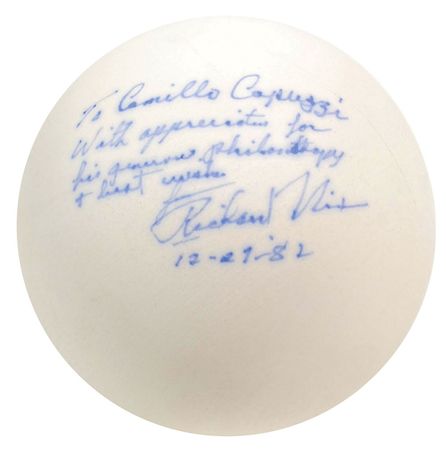 To Camillo Capuzzi
With appreciation for
his generous philanthropy
+ best wishes
Richard Nixon
12-29-82